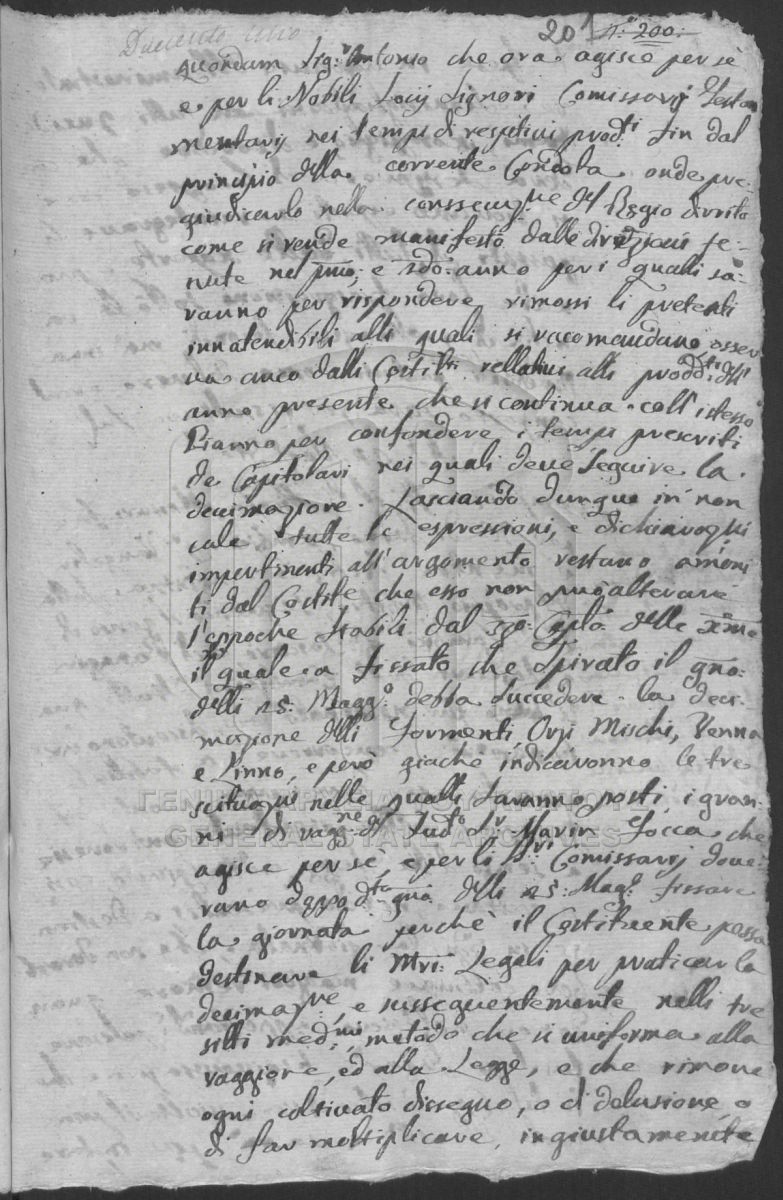 Duecento uno
201 N.° 200.
quondam Sig.r Antonio che ora agisce per sè
e per li Nobili Socij Signori Comissarij Testa
mentarij nei tempi di respetivi prod.ti fin dal
principio della corrente Condota onde pre-
giudicarlo nella conssecuz.ne del Regio diritto
come si rende manifesto dalle direzioni te-
nute nel p.mo, e s.do anno per i quali sa-
ranno per rispondere rimossi li pretesti
innatendibili alli quali si racomandano osser
va anco dalli Costit.ti rellativi alli prodd.ti dell'
anno presente che si continua coll'istesso
Pianno per confondere i tempi prescriti
de Capitolari nei quali deve seguire la
decimazione. Lasciando dunque in non
cale tutte le espressioni, e dichiarazioni
impertinenti all'argomento restano amoni
ti dal Costite che esso non può alterare
l'eppoche stabili dal Cap.lo delle Xme
il quale a fissato che spirato il gno.
delli 25: Magg.o debba succedere la deci-
mazione delli Formenti, Orzi Mischi, Venna
e Linno, e però giache indicavonno le tre
scituazi nelle qualli saranno posti i gran-
ni di ragg.ne del Sud.to S.r Marin Tocca che
agisce per sè e per li S.ri Comissarij dove-
rano doppo d.to gno. delli 25: Mag.o fissare
la giornata perchè il Costituente possa
destinare li Mri: Legali per praticar la
decimaz.ne, e susseguentemente nelli tre
sitti med.mi, metodo che si uniforma alla
raggione, ed alla Legge, e che rimove
ogni coltivato dissegno, o di delusione o
di far moltiplicare ingiustamente
ΓΕΝΙΚΑ ΑΡΧΕΙΑ ΤΟΥ ΚΡΑΤΟΥΣ
GENERAL STATE ARCHIVES